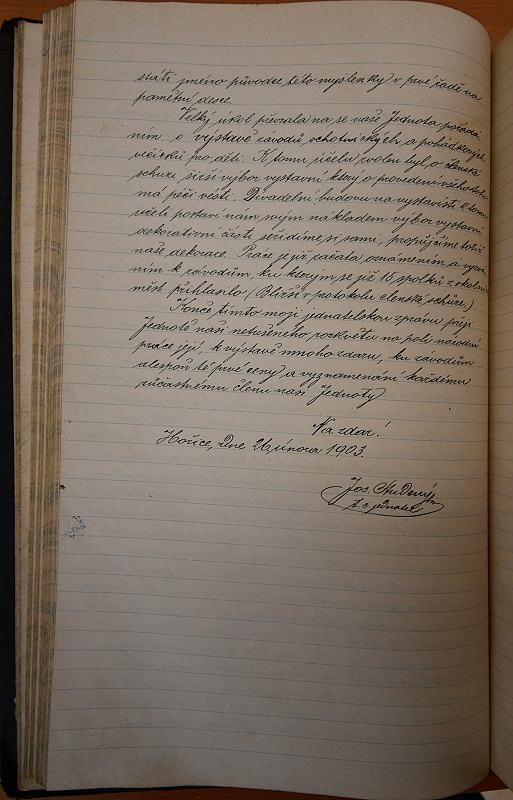 státi jméno původce této myšlenky v prvé řadě na
pamětní desce.
Velký úkol převzala na se naše Jednota pořádá
ním o výstavě závodů ochotnických a pohádkových
věčírků pro děti. K tomu účelu zvolen byl o členské
schůzi širší výbor výstavní který o provedení všeho toho
má péči vésti. Divadelní budovu na výstavišti k tomu
účeli postaví nám svým nákladem výbor výstavní
dekorativní část seřídíme si sami, propůjčíme totiž
naše dekorace. Práce je již začata oznámením a vyzvá
ním k závodům, ku kterým se již 16 spolků z okolních
měst přihlásilo (Bližší v protokolu členské schůze.)
Konče tímto moji jednatelskou zprávu přeji
Jednotě naší netušeného rozkvětu na poli národní
práce její, k výstavě mnoho zdaru, ku závodům
alespoň té prvé ceny a vyznamenání každému
súčastnému členu naší Jednoty
Na zdar!
Hořice, dne 26 února 1903.
Jos.
t. č. jednatel